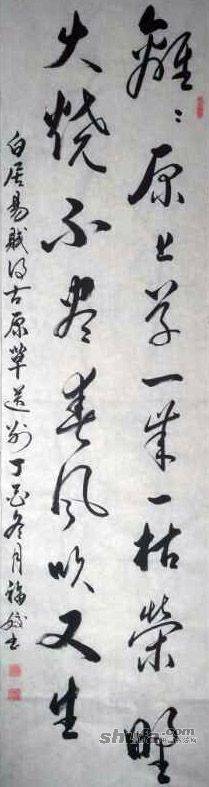 離〻原上草一歲一枯榮野
火燒不盡春風吹又生
白居易賦得古原草送别丁酉冬月福書